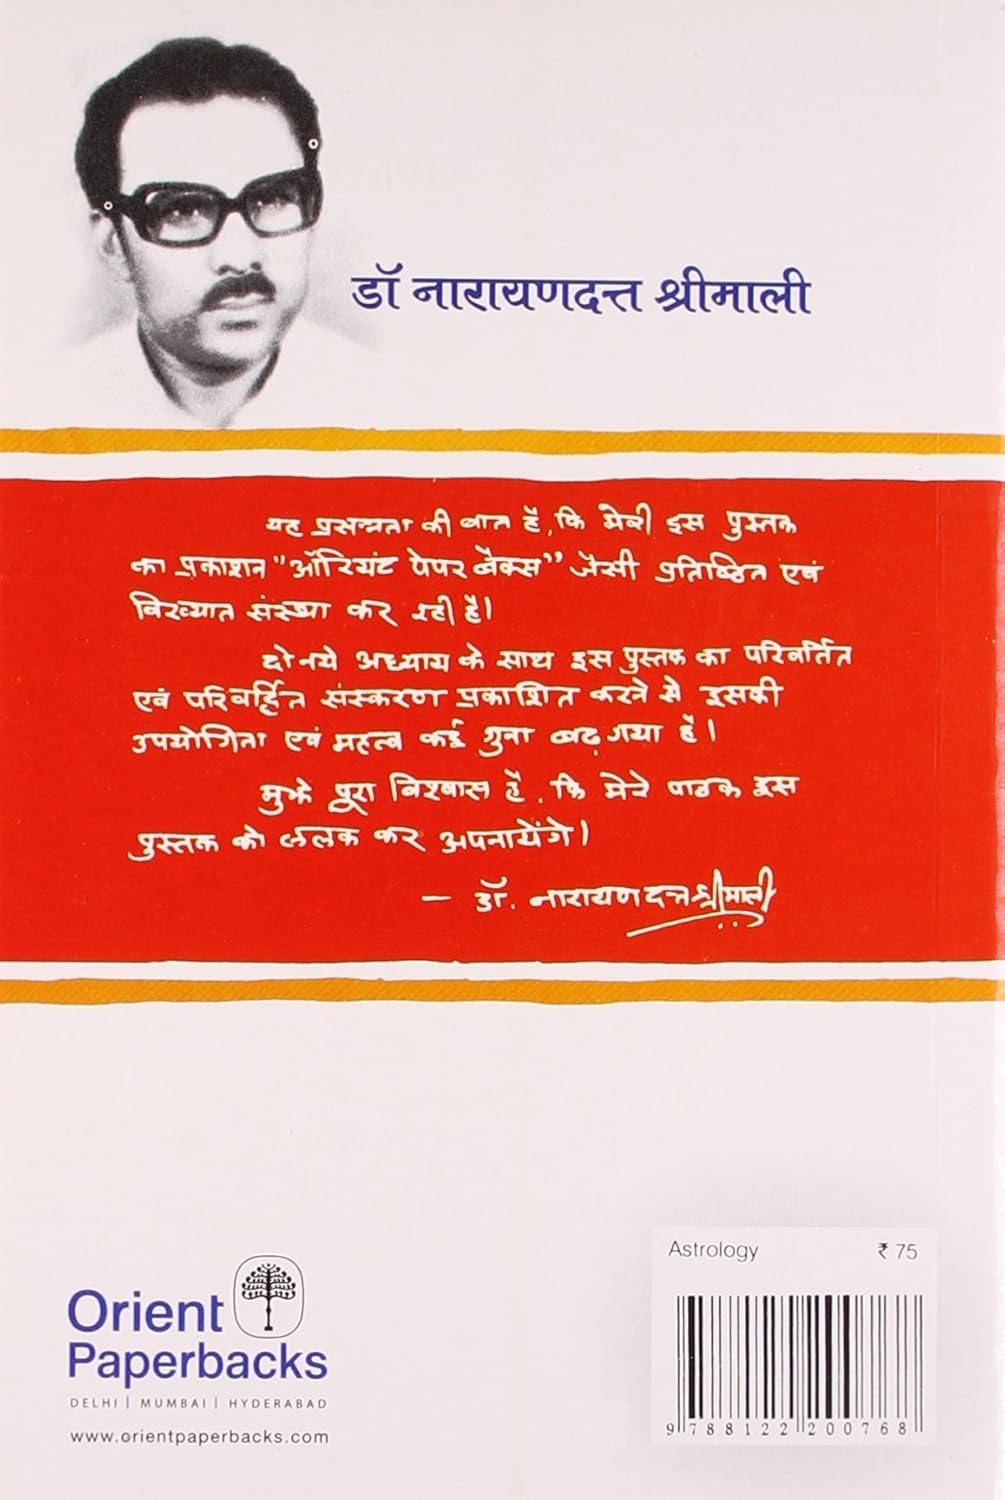 डॉ नारायणदत्त श्रीमाली
यह प्रसन्नता की बात है, कि मेरी इस पुस्तक
का प्रकाशन "ऑरियंट पेपर बैक्स" जैसी प्रतिष्ठित एवं
विख्यात संस्था कर रही है।
दो नये अध्याय के साथ इस पुस्तक का परिवर्तित
एवं परिवर्द्धित संस्करण प्रकाशित करने से इसकी
उपयोगिता एवं महत्व कई गुना बढ़ गया है।
मुझे पूरा विश्वास है, कि मेरे पाठक इस
पुस्तक को ललक कर अपनायेंगे।
— डॉ. नारायणदत्त श्रीमाली
Astrology ₹ 75
9 788122 200768
Orient
Paperbacks
DELHI | MUMBAI | HYDERABAD
www.orientpaperbacks.com